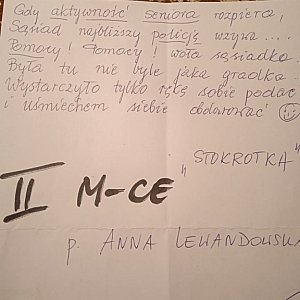 Gdy aktywność seniora rozpiera,
Sąsiad najbliższy policję wzywa ....
Pomocy! Pomocy! woła sąsiadka
Była tu nie byle jaka gradka.
Wystarczyło tylko rękę sobie podać
i uśmiechem siebie obdarować ☺
"STOKROTKA"
II M-CE
p. ANNA LEWANDOWSKA